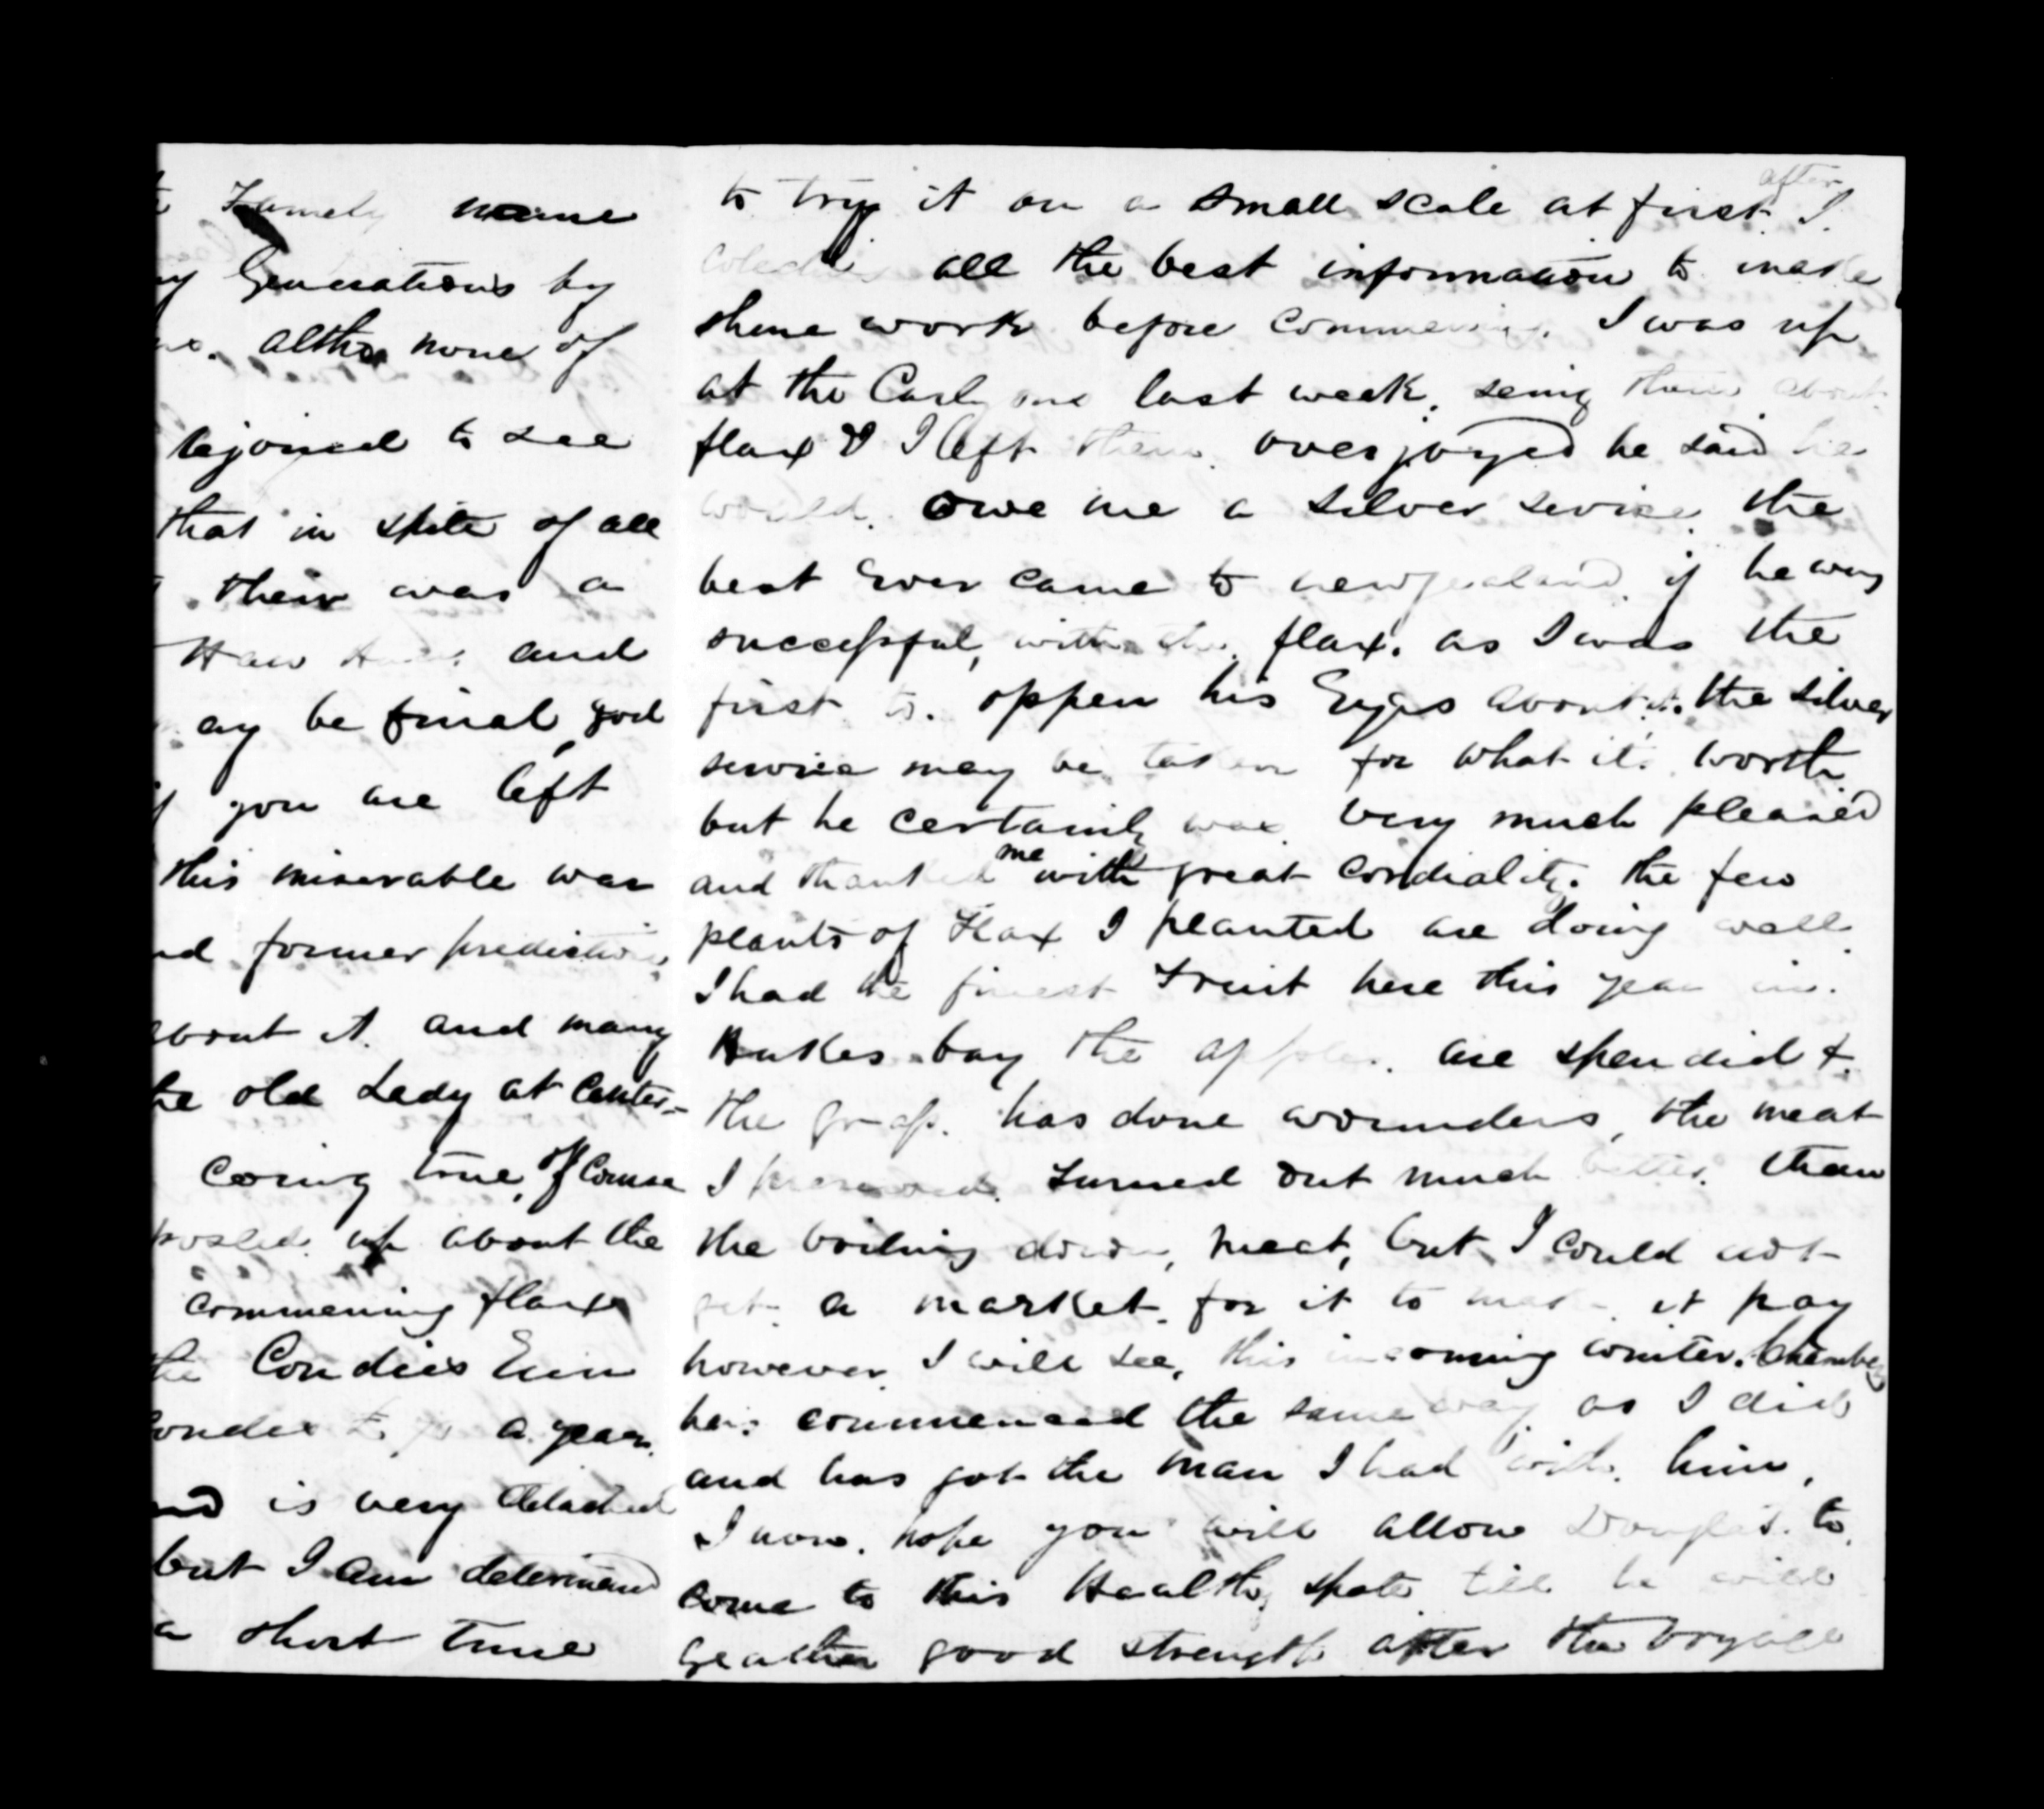 Famely name
Generations by
altho none of
rejoiced to see
that in spite of all
their was a
Haw and
ay be final, god
you are left
this miserable war
former prediction
about it. and many
he old Lady at Canter-
coming true, of Course
up about the
commencing flax
the Condies Erin
a year
is very detached
but I am determined
a short time
to try it on a small scale at first. after I
all the best information to make
shure work before commencing. I was up
at the last week, seing them about
flax & I left them overjoyed he said he
would. owe me a silver service the
best Ever came to newzealand if he was
successful, with the flax. as I was the
first to. oppen his Eyes about it. the silver
service may be taken for what its worth
but he certainly was very much pleased
and thanked me with great cordiality. the few
plants of Flax I planted are doing well
I had the finest Fruit here this year in.
Haukes bay the apples. are spendid &
the grass. has done wounders, the meat
I preserved. turned out much better than
the boiling down, meat, but I could not
get a market for it to make it pay
however I will see, this incoming winter.
has commenced the same way as I did
and has got the man I had with him,
I now. hope you will allow Douglas. to
come to this Healthy spote till he will
geather good strength after the voyage